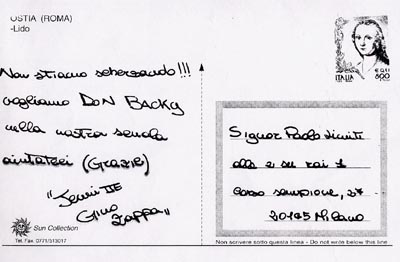 OSTIA (ROMA)
-Lido
Non stiamo scherzando!!!
vogliamo DON BACKY
nella nostra scuola
aiutateci (Grazie)
"Jenni III
Gino
Zappa"
Sun Collection
Tel. Fax. 0771/513017
ITALIA
800
Signor Paolo Limiti
alle 2 su rai 1
Corso sempione, 27
20145 Milano
Non scrivere sotto questa linea - Do not write below this line